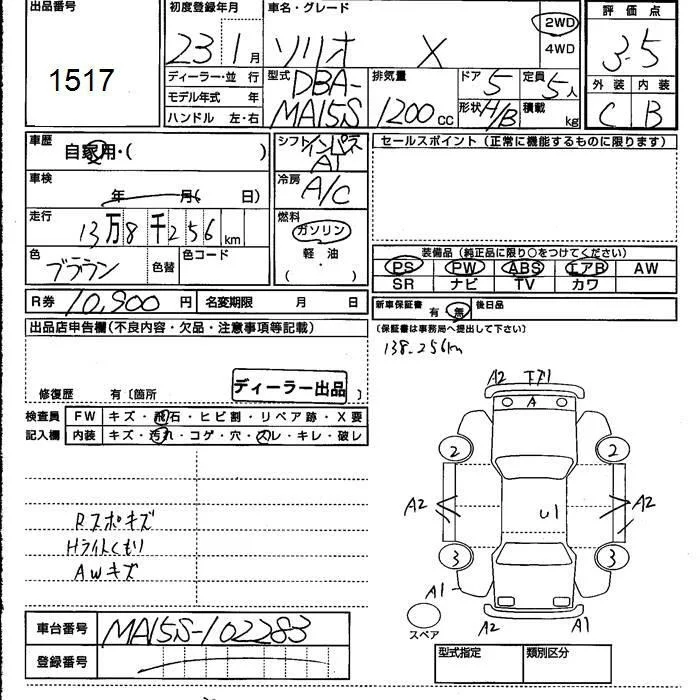 出品番号
1517
初度登録年月
23 1月
車名・グレード
ソリオ X
2WD
4WD
評価点
3.5
外装 内装
C B
ディーラー・並行
モデル年式 年
ハンドル 左・右
型式
DBA-
MA15S
排気量
1200cc
ドア 5
形状 H/B
定員 5人
積載 kg
車歴
自家用・( )
車検
年 月( 日)
走行
13万8千256km
色
ブラウン
色替
色コード
シフト インパネ
A1
冷房
A/C
燃料
ガソリン
軽・油
( ・ )
セールスポイント(正常に機能するものに限ります)
装備品(純正品に限り○をつけてください)
PS PW ABS エアB AW
SR ナビ TV カワ
R券 10,900円
名変期限 月 日
新車保証書 有 無 後日品
(保証書は事務局へ提出して下さい)
138.256km
出品店申告欄(不良内容・欠品・注意事項等記載)
修復歴 有〔箇所
ディーラー出品
検査員
記入欄
FW キズ・飛石・ヒビ割・リペア跡・X要
内装 キズ・汚れ・コゲ・穴・スレ・キレ・破レ
Rスポキズ
Hライトくもり
AWキズ
A2 下71
A
2 2
A2 A2
U1
3 3
A1
スペア
A2 A1
車台番号 MA15S-102283
登録番号
型式指定 類別区分